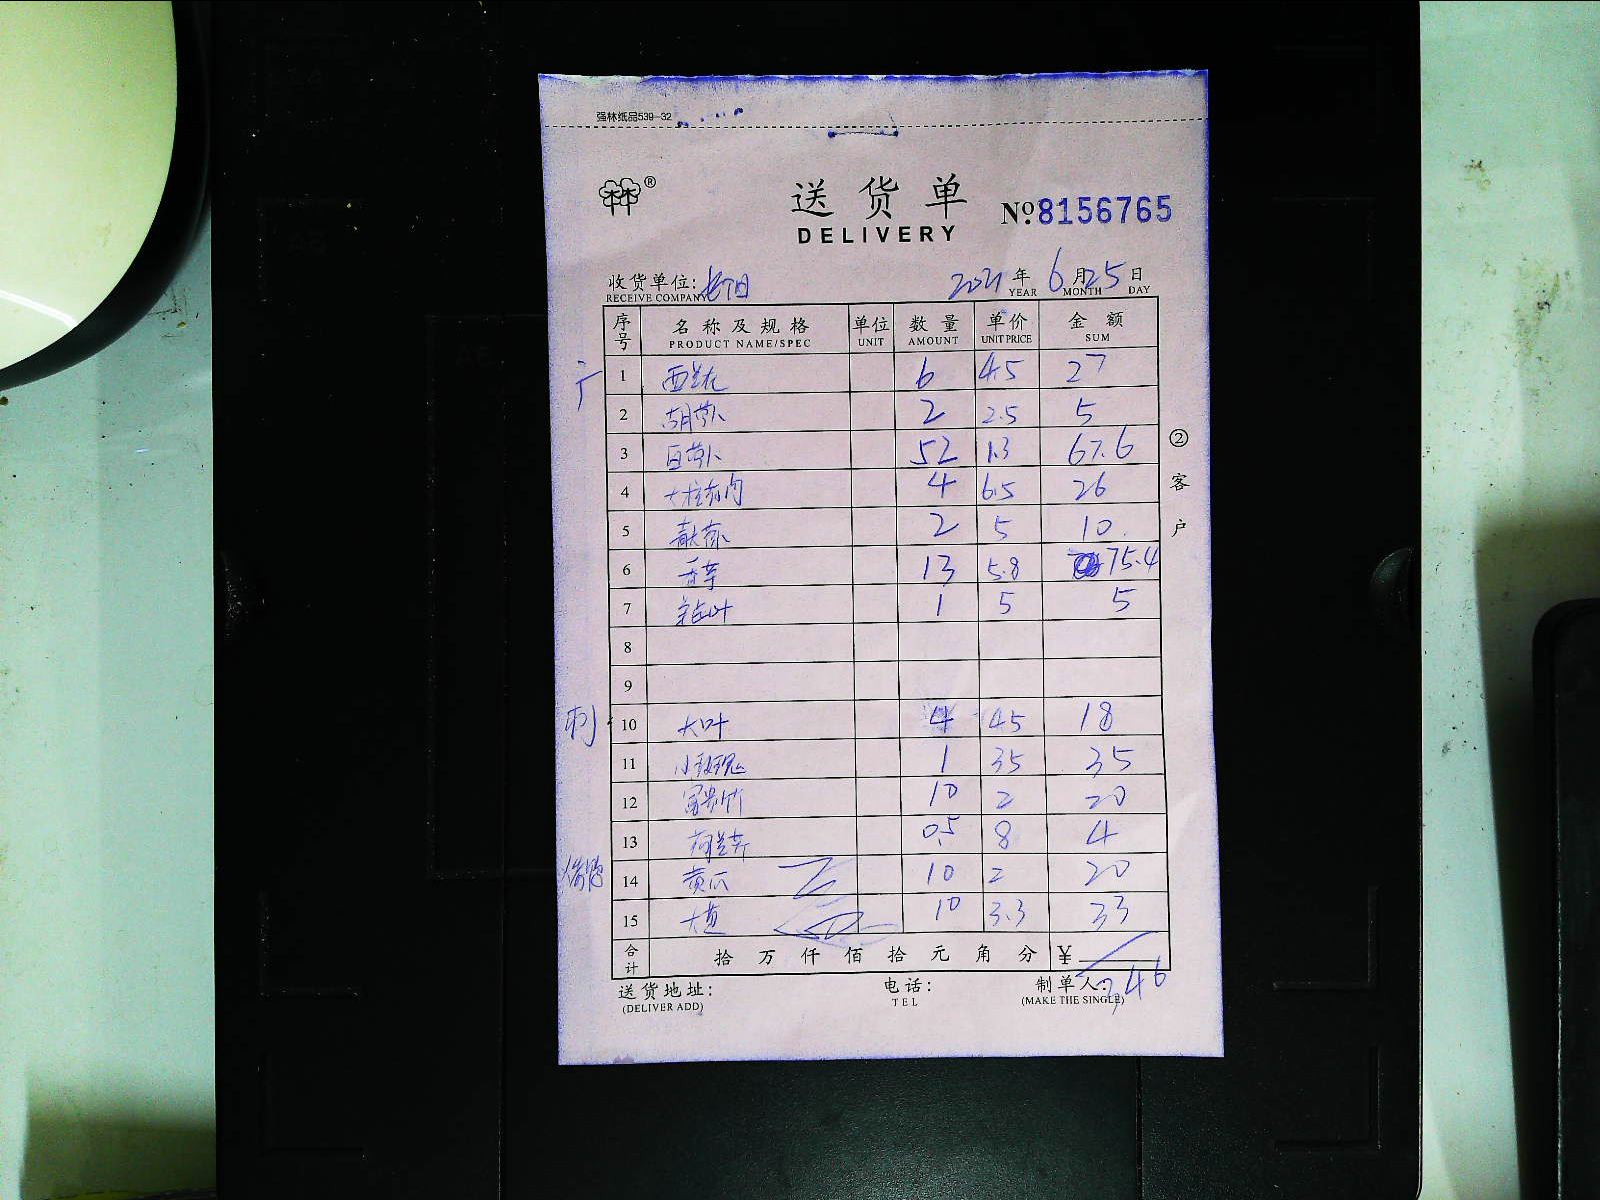 强林纸品539-32
®
送货单
DELIVERY
Nº8156765
收货单位:
RECEIVE COMPANY
2021年6月25日
YEAR MONTH DAY
序号 名称及规格 单位 数量 单价 金额
PRODUCT NAME/SPEC UNIT AMOUNT UNIT PRICE SUM
1 西兰花 6 4.5 27
2 胡萝卜 2 2.5 5
3 白萝卜 52 1.3 67.6
4 4 6.5 26
5 2 5 10
6 香芹 13 5.8 75.4
7 1 5 5
8
9
10 大叶 4 4.5 18
11 小玫瑰 1 35 35
12 富贵竹 10 2 20
13 荷兰芹 0.5 8 4
14 黄瓜 10 2 20
15 10 3.3 33
合计 拾万仟佰拾元角分 ¥
346
送货地址:
(DELIVER ADD)
电话:
TEL
制单人:
(MAKE THE SINGLE)
②客户